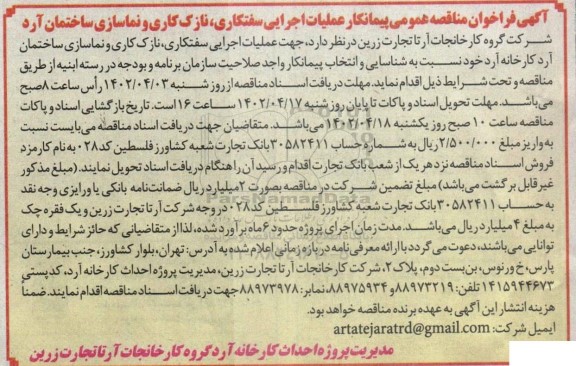 آگهی فراخوان مناقصه عمومی پیمانکار عملیات اجرایی سفتکاری، نازک کاری و نماسازی ساختمان آرد
شرکت گروه کارخانجات آرتا تجارت زرین در نظر دارد، جهت عملیات اجرایی سفتکاری، نازک کاری و نماسازی ساختمان
آرد کارخانه آرد خود نسبت به شناسایی و انتخاب پیمانکار واجد صلاحیت سازمان برنامه و بودجه در رسته ابنیه از طریق
مناقصه و تحت شرایط ذیل اقدام نماید. مهلت دریافت اسناد مناقصه از روز شنبه ۱۴۰۲/۰۴/۰۳ رأس ساعت ۸ صبح
می‌باشد. مهلت تحویل اسناد و پاکات تا پایان روز شنبه ۱۴۰۲/۰۴/۱۷ ساعت ۱۶ است. تاریخ بازگشایی اسناد و پاکات
مناقصه ساعت ۱۰ صبح روز یکشنبه ۱۴۰۲/۰۴/۱۸ می‌باشد. متقاضیان جهت دریافت اسناد مناقصه می‌بایست نسبت
به واریز مبلغ ۲/۵۰۰/۰۰۰ ریال به شماره حساب ۳۰۵۸۲۴۱۱ بانک تجارت شعبه کشاورز فلسطین کد ۰۲۸ به نام کارمزد
فروش اسناد مناقصه نزد هر یک از شعب بانک تجارت اقدام و رسید آن را هنگام دریافت اسناد تحویل نمایند. (مبلغ مذکور
غیر قابل برگشت می‌باشد) مبلغ تضمین شرکت در مناقصه بصورت ۲ میلیارد ریال ضمانت‌نامه بانکی یا واریزی وجه نقد
به حساب ۳۰۵۸۲۴۱۱ بانک تجارت شعبه کشاورز فلسطین کد ۰۲۸ در وجه شرکت آرتا تجارت زرین و یک فقره چک
به مبلغ ۴ میلیارد ریال می‌باشد. مدت زمان اجرای پروژه حدود ۶ ماه برآورد شده، لذا از متقاضیانی که حائز شرایط و دارای
توانایی می‌باشند، دعوت می‌گردد با ارائه معرفی نامه در بازه زمانی اعلام شده به آدرس: تهران، بلوار کشاورز، جنب بیمارستان
پارس، خ ورنوس، بن‌بست دوم، پلاک ۲، شرکت کارخانجات آرتا تجارت زرین، مدیریت پروژه احداث کارخانه آرد، کدپستی
۱۴۱۵۹۴۴۶۷۳ تلفن: ۸۸۹۷۳۲۱۹ و ۸۸۹۷۵۹۳۴ نمابر: ۸۸۹۷۳۹۷۸ جهت دریافت اسناد مناقصه اقدام نمایند. ضمناً
هزینه انتشار این آگهی به عهده برنده مناقصه خواهد بود.
ایمیل شرکت: artatejaratrd@gmail.com
مدیریت پروژه احداث کارخانه آرد گروه کارخانجات آرتا تجارت زرین